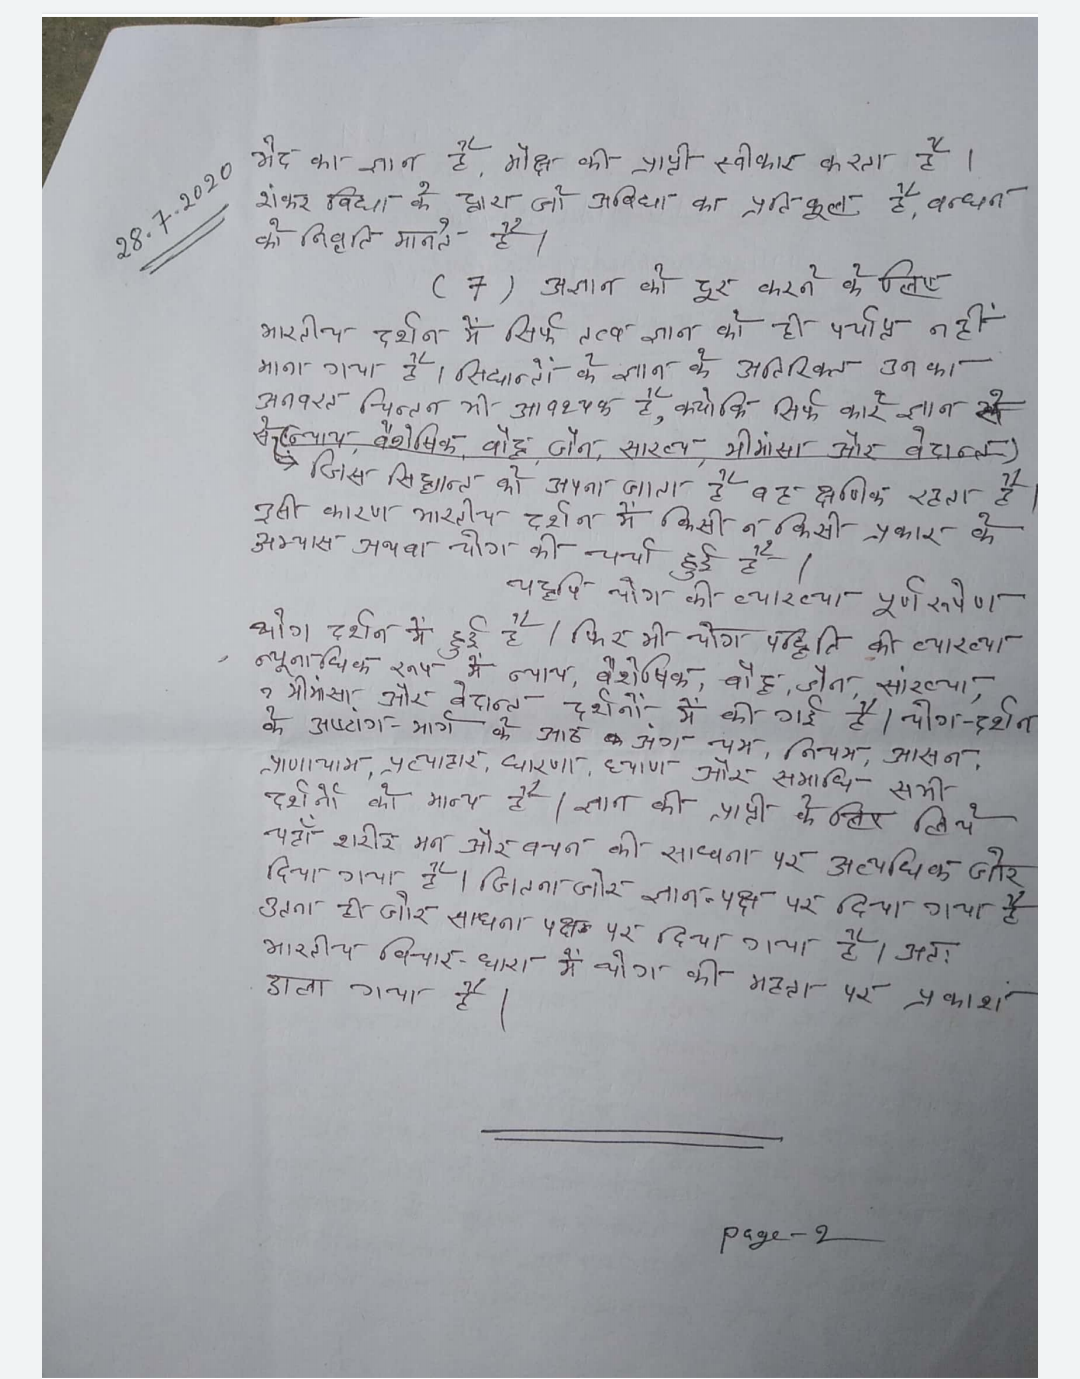 28.7.2020
भेद का ज्ञान है, मोक्ष की प्राप्ती स्वीकार करता है।
शंकर विद्या के द्वारा जो अविद्या का प्रतिकूल है, वन्धन
की निवृति मानते है।
(7) अज्ञान को दूर करने के लिए
भारतीय दर्शन में सिर्फ तत्व ज्ञान को ही पर्याप्त नहीं
माना गया है। सिद्धान्तों के ज्ञान के अतिरिक्त उनका
अनवरत चिन्तन भी आवश्यक है, क्योकि सिर्फ कोरे ज्ञान से
से (न्याय, वैशेषिक, बौद्ध, जैन, सांख्य, मीमांसा और वेदान्त)
जिस सिद्धान्त को अपना जाता है वह क्षणिक रहता है।
इसी कारण भारतीय दर्शन में किसी न किसी प्रकार के
अभ्यास अथवा योग की चर्चा हुई है।
यद्यपि योग की व्याख्या पूर्ण रूपेण
योग दर्शन में हुई है। फिर भी योग पद्धति की व्याख्या
न्यूनाधिक रूप में न्याय, वैशेषिक, बौद्ध, जैन, सांख्या,
मीमांसा और वेदान्त दर्शनों में की गई है। योग-दर्शन
के अष्टांग-मार्ग के आठ अंग यम, नियम, आसन,
प्राणायाम, प्रत्याहार, धारणा, ध्याण और समाधि सभी
दर्शनों को मान्य है। ज्ञान की प्राप्ती के लिए लिये
यहाँ शरीर मन और वचन की साधना पर अत्यधिक जोर
दिया गया है। जितना जोर ज्ञान-पक्ष पर दिया गया है
उतना ही जोर साधना पक्ष पर दिया गया है। अतः
भारतीय विचार-धारा में योग की महत्ता पर प्रकाश
डाला गया है।
page-2